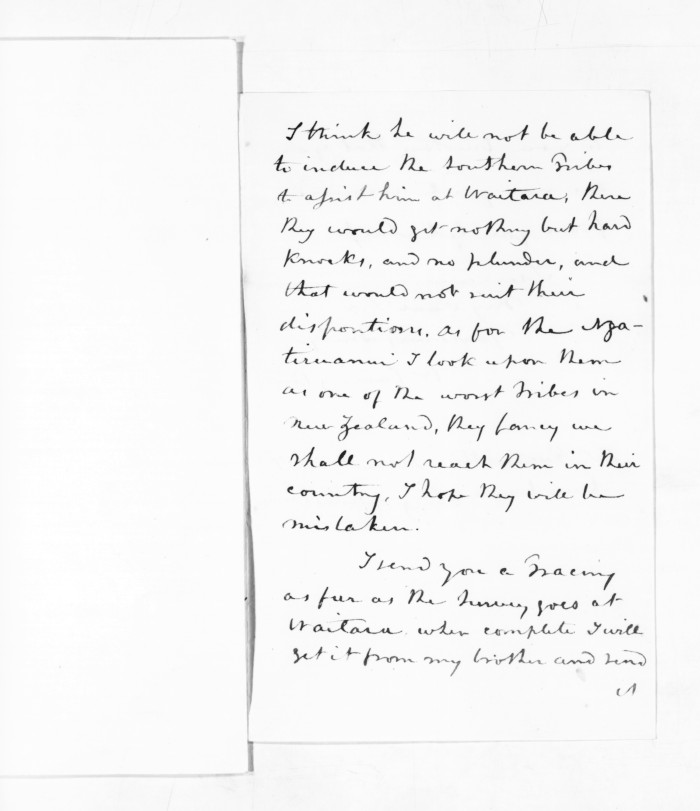 I think he will not be able
to induce the Southern Tribes
to assist him at Waitara, there
they would get nothing but hard
Knocks, and no plunder, and
that would not suit their
dispositions. as for the Nga-
tiruanui I look upon them
as one of the worst Tribes in
New Zealand, they fancy we
shall not reach them in their
country, I hope they will be
mistaken.
I send you a Tracing
as far as the Survey goes at
Waitara. when complete I will
get it from my brother and send
it